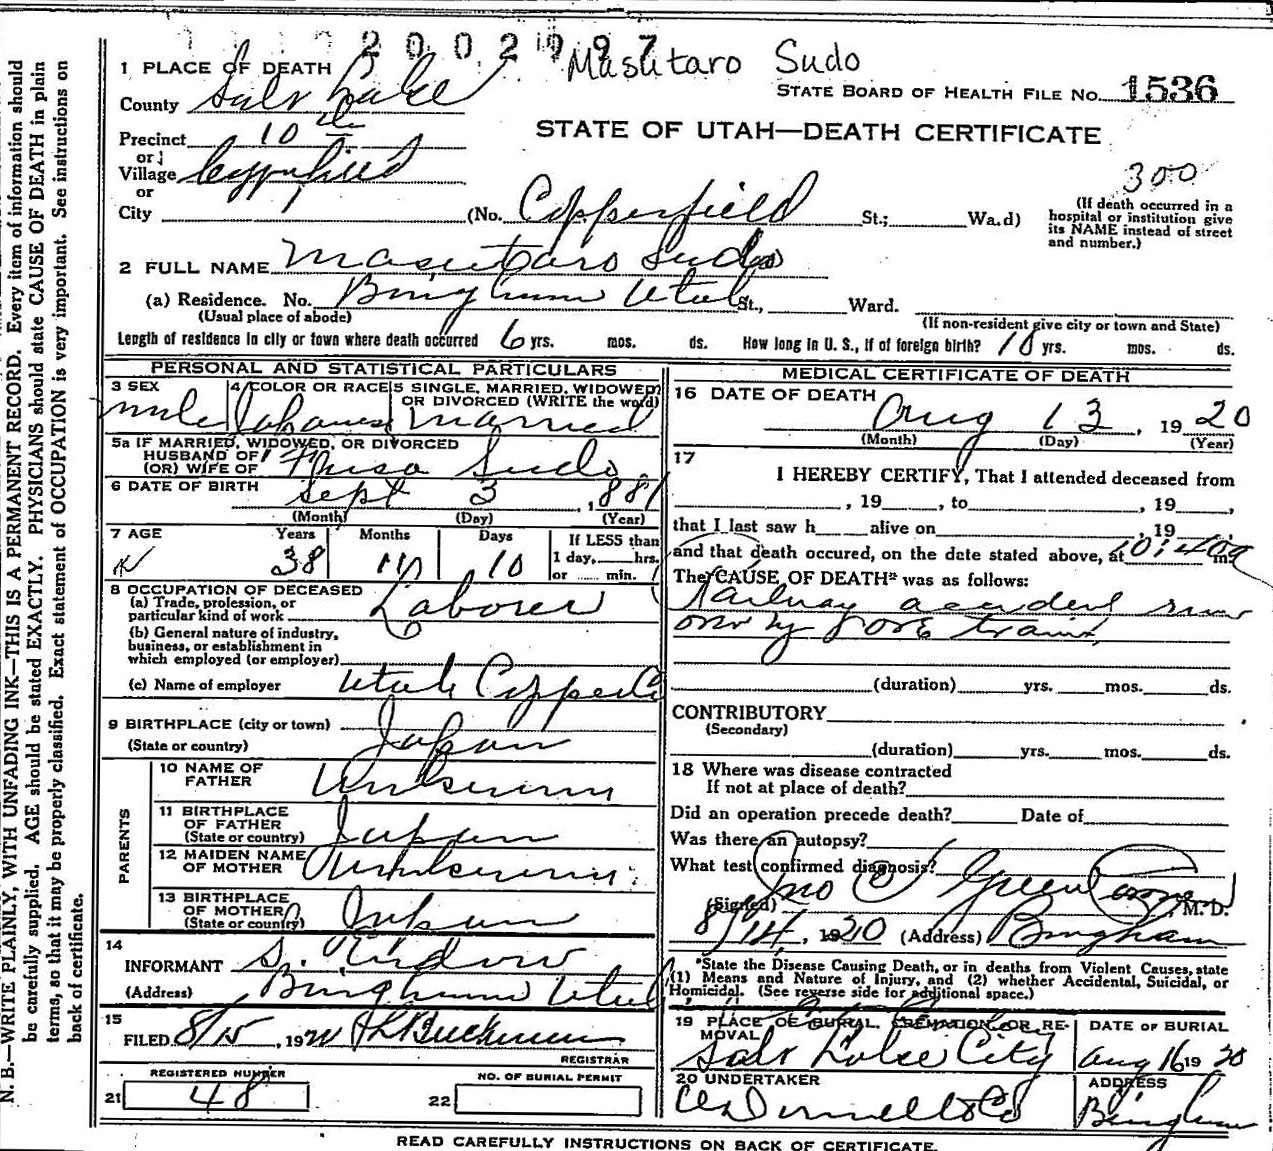 2002997
Masutaro Sudo
1 PLACE OF DEATH
County Salt Lake
STATE BOARD OF HEALTH FILE NO. 1536
Precinct 10th
STATE OF UTAH—DEATH CERTIFICATE
or
Village Copperfield
300
or
City (No. Copperfield St.; Wa.d)
(If death occurred in a
hospital or institution give
its NAME instead of street
and number.)
2 FULL NAME Masutaro Sudo
(a) Residence. No. Bingham Utah St., Ward.
(Usual place of abode)
(If non-resident give city or town and State)
Length of residence in city or town where death occurred 6 yrs. mos. ds. How long in U. S., if of foreign birth? 10 yrs. mos. ds.
PERSONAL AND STATISTICAL PARTICULARS
3 SEX
male
4 COLOR OR RACE
Japanese
5 SINGLE, MARRIED, WIDOWED
OR DIVORCED (WRITE the word)
married
5a IF MARRIED, WIDOWED, OR DIVORCED
HUSBAND OF
(OR) WIFE OF Sudo
6 DATE OF BIRTH Sept 3, 1881
(Month) (Day) (Year)
7 AGE Years Months Days If LESS than
38 11 10 1 day, hrs.
or min.
8 OCCUPATION OF DECEASED
(a) Trade, profession, or
particular kind of work Laborer
(b) General nature of industry,
business, or establishment in
which employed (or employer)
(c) Name of employer Utah Copper Co
9 BIRTHPLACE (city or town)
(State or country) Japan
PARENTS
10 NAME OF
FATHER Unknown
11 BIRTHPLACE
OF FATHER
(State or country) Japan
12 MAIDEN NAME
OF MOTHER Unknown
13 BIRTHPLACE
OF MOTHER
(State or country) Japan
14
INFORMANT S.
(Address) Bingham Utah
15
FILED 8/15, 1920
REGISTRAR
REGISTERED NUMBER
21 48
NO. OF BURIAL PERMIT
22
MEDICAL CERTIFICATE OF DEATH
16 DATE OF DEATH
Aug 13, 1920
(Month) (Day) (Year)
17
I HEREBY CERTIFY, That I attended deceased from
, 19 , to , 19 ,
that I last saw h alive on , 19
and that death occured, on the date stated above, at 10:40a m.
The CAUSE OF DEATH* was as follows:
Railway accident run
over by ore train
(duration) yrs. mos. ds.
CONTRIBUTORY
(Secondary)
(duration) yrs. mos. ds.
18 Where was disease contracted
If not at place of death?
Did an operation precede death? Date of
Was there an autopsy?
What test confirmed diagnosis?
(Signed) Jno C Green Coroner, M. D.
8/14, 1920 (Address) Bingham
*State the Disease Causing Death, or in deaths from Violent Causes, state
(1) Means and Nature of Injury, and (2) whether Accidental, Suicidal, or
Homicidal. (See reverse side for additional space.)
19 PLACE OF BURIAL, CREMATION, OR RE-
MOVAL
Salt Lake City
DATE OF BURIAL
Aug 16 1920
20 UNDERTAKER
ADDRESS
Bingham
READ CAREFULLY INSTRUCTIONS ON BACK OF CERTIFICATE.
N. B.—WRITE PLAINLY, WITH UNFADING INK—THIS IS A PERMANENT RECORD. Every item of information should
be carefully supplied. AGE should be stated EXACTLY. PHYSICIANS should state CAUSE OF DEATH in plain
terms, so that it may be properly classified. Exact statement of OCCUPATION is very important. See instructions on
back of certificate.